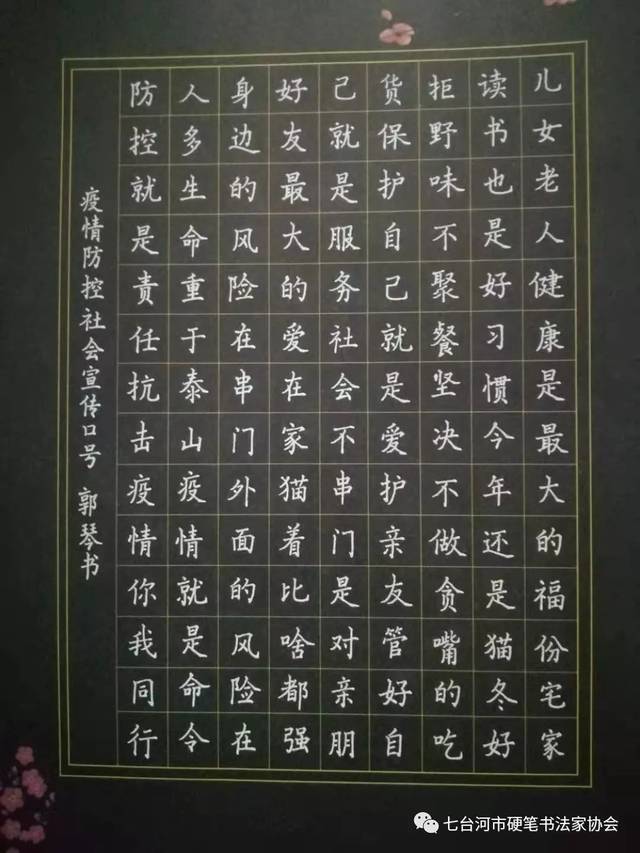 儿女老人健康是最大的福份宅家
读书也是好习惯今年还是猫冬好
拒野味不聚餐坚决不做贪嘴的吃
货保护自己就是爱护亲友管好自
己就是服务社会不串门是对亲朋
好友最大的爱在家猫着比啥都强
身边的风险在串门外面的风险在
人多生命重于泰山疫情就是命令
防控就是责任抗击疫情你我同行
疫情防控社会宣传口号 郭琴书
七台河市硬笔书法家协会